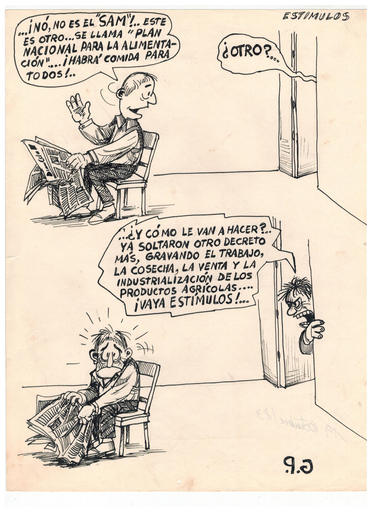 ESTIMULOS
...¡NÓ, NO ES EL "SAM"!.. ESTE
ES OTRO... SE LLAMA "PLAN
NACIONAL PARA LA ALIMENTA-
CIÓN"....¡HABRÁ COMIDA PARA
TODOS!..
¿OTRO?...
...¿Y CÓMO LE VAN A HACER?..
YA SOLTARON OTRO DECRETO
MÁS, GRAVANDO EL TRABAJO,
LA COSECHA, LA VENTA Y LA
INDUSTRIALIZACIÓN DE LOS
PRODUCTOS AGRÍCOLAS....
¡VAYA ESTÍMULOS!...